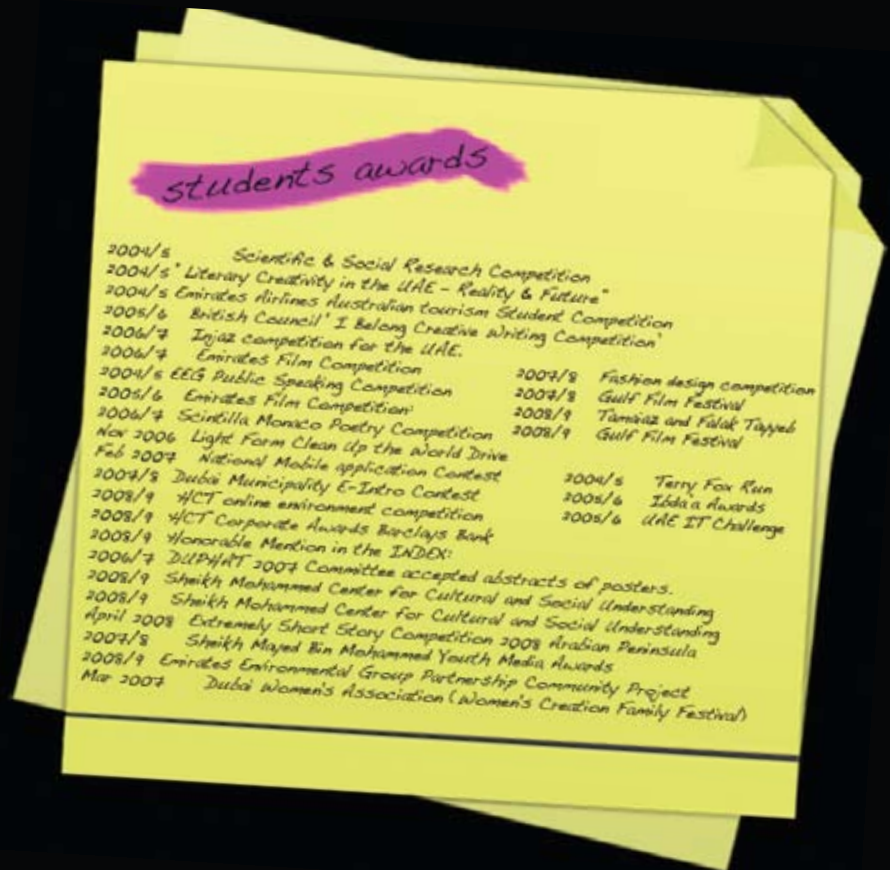 students awards
2004/5 Scientific & Social Research Competition
2004/5 " Literary Creativity in the UAE - Reality & Future"
2004/5 Emirates Airlines Australian tourism Student Competition
2005/6 British Council' I Belong Creative Writing Competition'
2006/7 Injaz competition for the UAE.
2006/7 Emirates Film Competition
2004/5 EEG Public Speaking Competition
2005/6 Emirates Film Competition'
2006/7 Scintilla Monaco Poetry Competition
Nov 2006 Light Form Clean Up the World Drive
Feb 2007 National Mobile application Contest
2007/8 Dubai Municipality E-Intro Contest
2008/9 HCT online environment competition
2008/9 HCT Corporate Awards Barclays Bank
2008/9 Honorable Mention in the INDEX:
2006/7 DUPHAT 2007 Committee accepted abstracts of posters.
2008/9 Sheikh Mohammed Center for Cultural and Social Understanding
2008/9 Sheikh Mohammed Center for Cultural and Social Understanding
April 2008 Extremely Short Story Competition 2008 Arabian Peninsula
2007/8 Sheikh Mayed Bin Mohammed Youth Media Awards
2008/9 Emirates Environmental Group Partnership Community Project
Mar 2007 Dubai Women's Association (Women's Creation Family Festival)
2007/8 Fashion design competition
2007/8 Gulf Film Festival
2008/9 Tamaiaz and Falak Tayyeb
2008/9 Gulf Film Festival
2004/5 Terry Fox Run
2005/6 Ibda'a Awards
2005/6 UAE IT Challenge